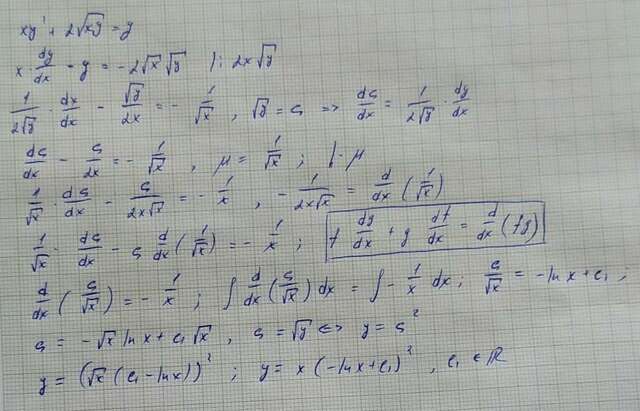 xy' + 2√xy = y
x · dy/dx - y = -2√x √y | : 2x√y
1/2√y · dx/dx - √y/2x = - 1/√x , √y = s => ds/dx = 1/2√y · dy/dx
ds/dx - s/2x = - 1/√x , μ = 1/√x ; | · μ
1/√x · ds/dx - s/2x√x = - 1/x , - 1/2x√x = d/dx (1/√x)
1/√x · ds/dx - s d/dx (1/√x) = - 1/x ; f dg/dx + g df/dx = d/dx (fg)
d/dx (s/√x) = - 1/x ; ∫ d/dx (s/√x) dx = ∫ - 1/x dx ; s/√x = -ln x + c₁ ,
s = -√x ln x + c₁√x , s = √y <=> y = s²
y = (√x (c₁ - ln x))² ; y = x (-ln x + c₁)² , c₁ ∈ ℝ